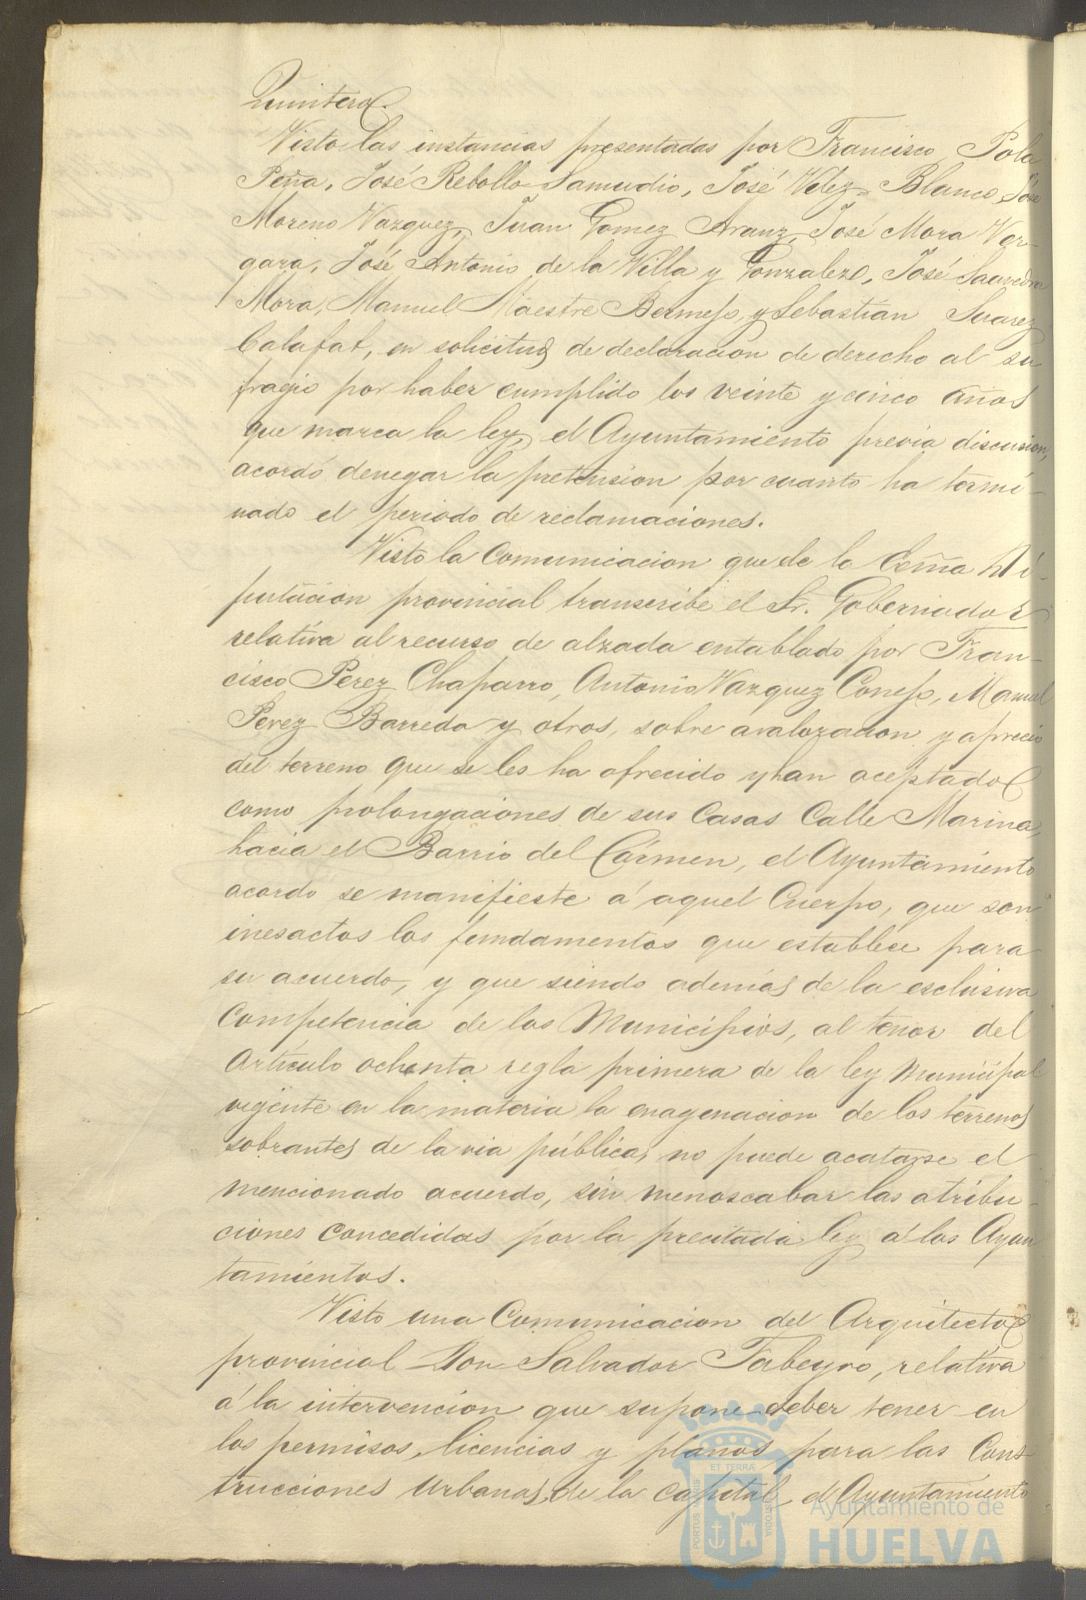 Quintero.
Visto las instancias presentadas por Francisco Pola
Peña, José Rebollo Samudio, José Velez Blanco, José
Moreno Vazquez, Juan Gomez Aranz, José Mora Ver-
gara, José Antonio de la Villa y Gonzalez, José Saavedra
Mora, Manuel Maestre Bermejo, y Sebastian Suarez
Calafat, en solicitud de declaracion de derecho al su
fragio por haber cumplido los veinte y cinco años
que marca la ley, el Ayuntamiento previa discusion,
acordó denegar la pretension por cuanto ha termi-
nado el periodo de reclamaciones.
Visto la Comunicacion que de la Excma Di-
putación provincial transcribe el Sr. Gobernador
relativa al recurso de alzada entablado por Fran-
cisco Perez Chaparro, Antonio Vazquez Conejo, Manuel
Perez Barreda y otros, sobre avaloracion y aprecio
del terreno que se les ha ofrecido y han aceptado
como prolongaciones de sus Casas Calle Marina,
hacia el Barrio del Cármen, el Ayuntamiento
acordo se manifieste á aquel Cuerpo, que son
inesactos los fundamentos que establece para
su acuerdo, y que siendo además de la esclusiva
Competencia de los Municipios, al tenor del
Artículo ochenta regla primera de la ley Municipal
vigente en la materia la enagenacion de los terrenos
sobrantes de la via pública, no puede acatarse el
mencionado acuerdo, sin menoscabar las atribu-
ciones concedidas por la precitada ley á los Ayun
tamientos.
Visto una Comunicacion del Arquitecto
provincial Don Salvador Tabeyro, relativa
á la intervencion que supone deber tener en
los permisos, licencias y planos para las Cons-
trucciones Urbanas de la capital, el Ayuntamiento
PORTUS MARIS ET TERRÆ CUSTODIA
Ayuntamiento de
HUELVA